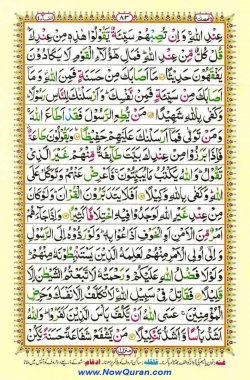 ٨٣
عِنْدِ اللّٰهِ وَاِنْ تُصِبْهُمْ سَيِّئَةٌ يَّقُوْلُوْا هٰذِهٖ مِنْ عِنْدِكَ
قُلْ كُلٌّ مِّنْ عِنْدِ اللّٰهِ فَمَالِ هٰٓؤُلَآءِ الْقَوْمِ لَا يَكَادُوْنَ
يَفْقَهُوْنَ حَدِيْثًا مَآ اَصَابَكَ مِنْ حَسَنَةٍ فَمِنَ اللّٰهِ وَمَآ
اَصَابَكَ مِنْ سَيِّئَةٍ فَمِنْ نَّفْسِكَ وَاَرْسَلْنٰكَ لِلنَّاسِ رَسُوْلًا
وَكَفٰى بِاللّٰهِ شَهِيْدًا مَنْ يُّطِعِ الرَّسُوْلَ فَقَدْ اَطَاعَ اللّٰهَ
وَمَنْ تَوَلّٰى فَمَآ اَرْسَلْنٰكَ عَلَيْهِمْ حَفِيْظًا وَيَقُوْلُوْنَ طَاعَةٌ
فَاِذَا بَرَزُوْا مِنْ عِنْدِكَ بَيَّتَ طَآئِفَةٌ مِّنْهُمْ غَيْرَ الَّذِيْ
تَقُوْلُ وَاللّٰهُ يَكْتُبُ مَا يُبَيِّتُوْنَ فَاَعْرِضْ عَنْهُمْ وَتَوَكَّلْ عَلَى
اللّٰهِ وَكَفٰى بِاللّٰهِ وَكِيْلًا اَفَلَا يَتَدَبَّرُوْنَ الْقُرْاٰنَ وَلَوْ كَانَ
مِنْ عِنْدِ غَيْرِ اللّٰهِ لَوَجَدُوْا فِيْهِ اخْتِلَافًا كَثِيْرًا وَاِذَا جَآءَهُمْ
اَمْرٌ مِّنَ الْاَمْنِ اَوِ الْخَوْفِ اَذَاعُوْا بِهٖ وَلَوْ رَدُّوْهُ اِلَى الرَّسُوْلِ
وَاِلٰٓى اُولِى الْاَمْرِ مِنْهُمْ لَعَلِمَهُ الَّذِيْنَ يَسْتَنْۢبِطُوْنَهٗ مِنْهُمْ
وَلَوْلَا فَضْلُ اللّٰهِ عَلَيْكُمْ وَرَحْمَتُهٗ لَاتَّبَعْتُمُ الشَّيْطٰنَ اِلَّا
قَلِيْلًا فَقَاتِلْ فِيْ سَبِيْلِ اللّٰهِ لَا تُكَلَّفُ اِلَّا نَفْسَكَ وَحَرِّضِ
الْمُؤْمِنِيْنَ عَسَى اللّٰهُ اَنْ يَّكُفَّ بَاْسَ الَّذِيْنَ كَفَرُوْا وَاللّٰهُ
اَشَدُّ بَاْسًا وَّاَشَدُّ تَنْكِيْلًا مَنْ يَّشْفَعْ شَفَاعَةً حَسَنَةً يَّكُنْ
www.NowQuran.com